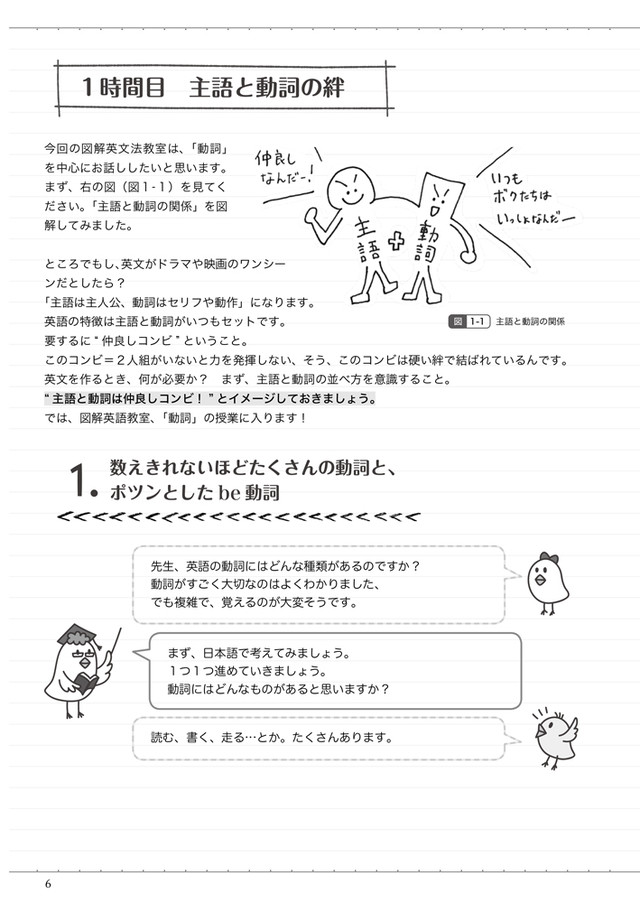 1時間目　主語と動詞の絆
今回の図解英文法教室は、「動詞」
を中心にお話ししたいと思います。
まず、右の図（図1-1）を見てく
ださい。「主語と動詞の関係」を図
解してみました。
仲良し
なんだー！
いつも
ボクたちは
いっしょなんだー
主語
+
動詞
図 1-1 主語と動詞の関係
ところでもし、英文がドラマや映画のワンシー
ンだとしたら？
「主語は主人公、動詞はセリフや動作」になります。
英語の特徴は主語と動詞がいつもセットです。
要するに“仲良しコンビ”ということ。
このコンビ＝2人組がいないと力を発揮しない、そう、このコンビは硬い絆で結ばれているんです。
英文を作るとき、何が必要か？　まず、主語と動詞の並べ方を意識すること。
“主語と動詞は仲良しコンビ！”とイメージしておきましょう。
では、図解英語教室、「動詞」の授業に入ります！
1. 数えきれないほどたくさんの動詞と、
ポツンとした be 動詞
先生、英語の動詞にはどんな種類があるのですか？
動詞がすごく大切なのはよくわかりました、
でも複雑で、覚えるのが大変そうです。
まず、日本語で考えてみましょう。
1つ1つ進めていきましょう。
動詞にはどんなものがあると思いますか？
読む、書く、走る…とか。たくさんあります。
6